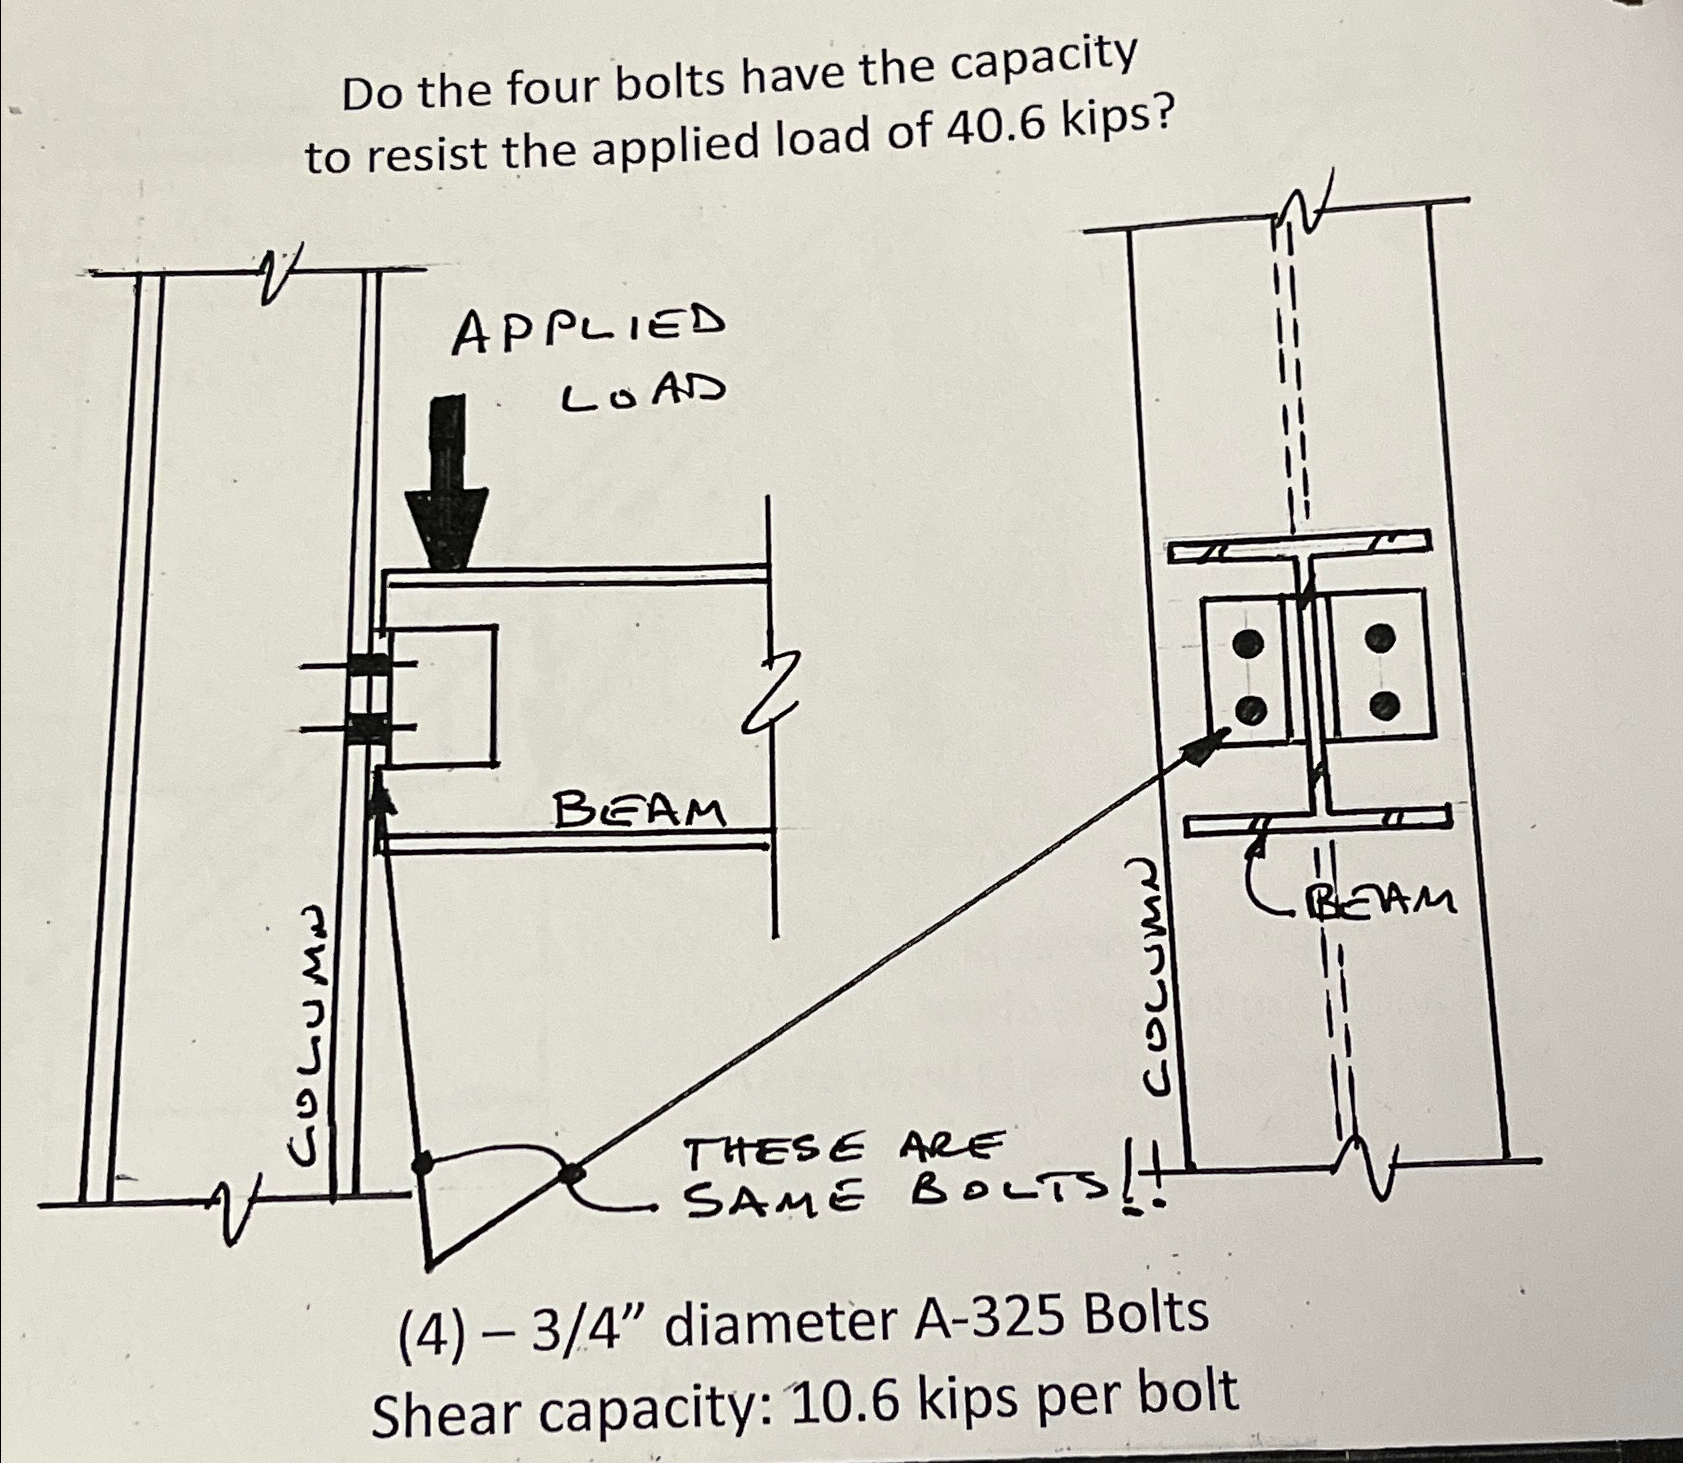 Do the four bolts have the capacity
to resist the applied load of 40.6 kips?
APPLIED
LOAD
BEAM
COLUMN
BEAM
COLUMN
THESE ARE
SAME BOLTS!!
(4) – 3/4” diameter A-325 Bolts
Shear capacity: 10.6 kips per bolt